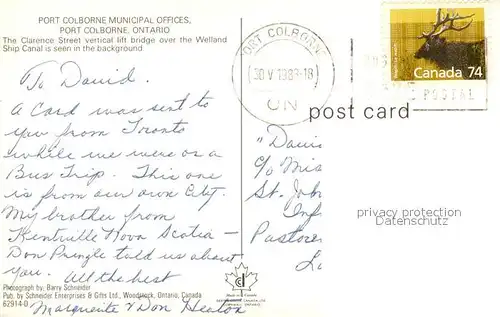 PORT COLBORNE MUNICIPAL OFFICES,
PORT COLBORNE, ONTARIO
The Clarence Street vertical lift bridge over the Welland
Ship Canal is seen in the background
PORT COLBORNE
30 V 1989-18
ON
Canada 74
POSTAL
post card
To David.
A Card was sent to
you from Toronto
while we were on a
Bus Trip. This one
is from our own City.
My brother from
Kentville Nova Scotia –
Don Pringle told us about
you. All the best
Marguerite & Don Heaton
"Davi
c/o Mis
St. Joh
Inf
Pastore
La
privacy protection
Datenschutz
Photograph by: Barry Schneider
Pub. by Schneider Enterprises & Gifts Ltd., Woodstock, Ontario, Canada
62914-D
Made in Canada